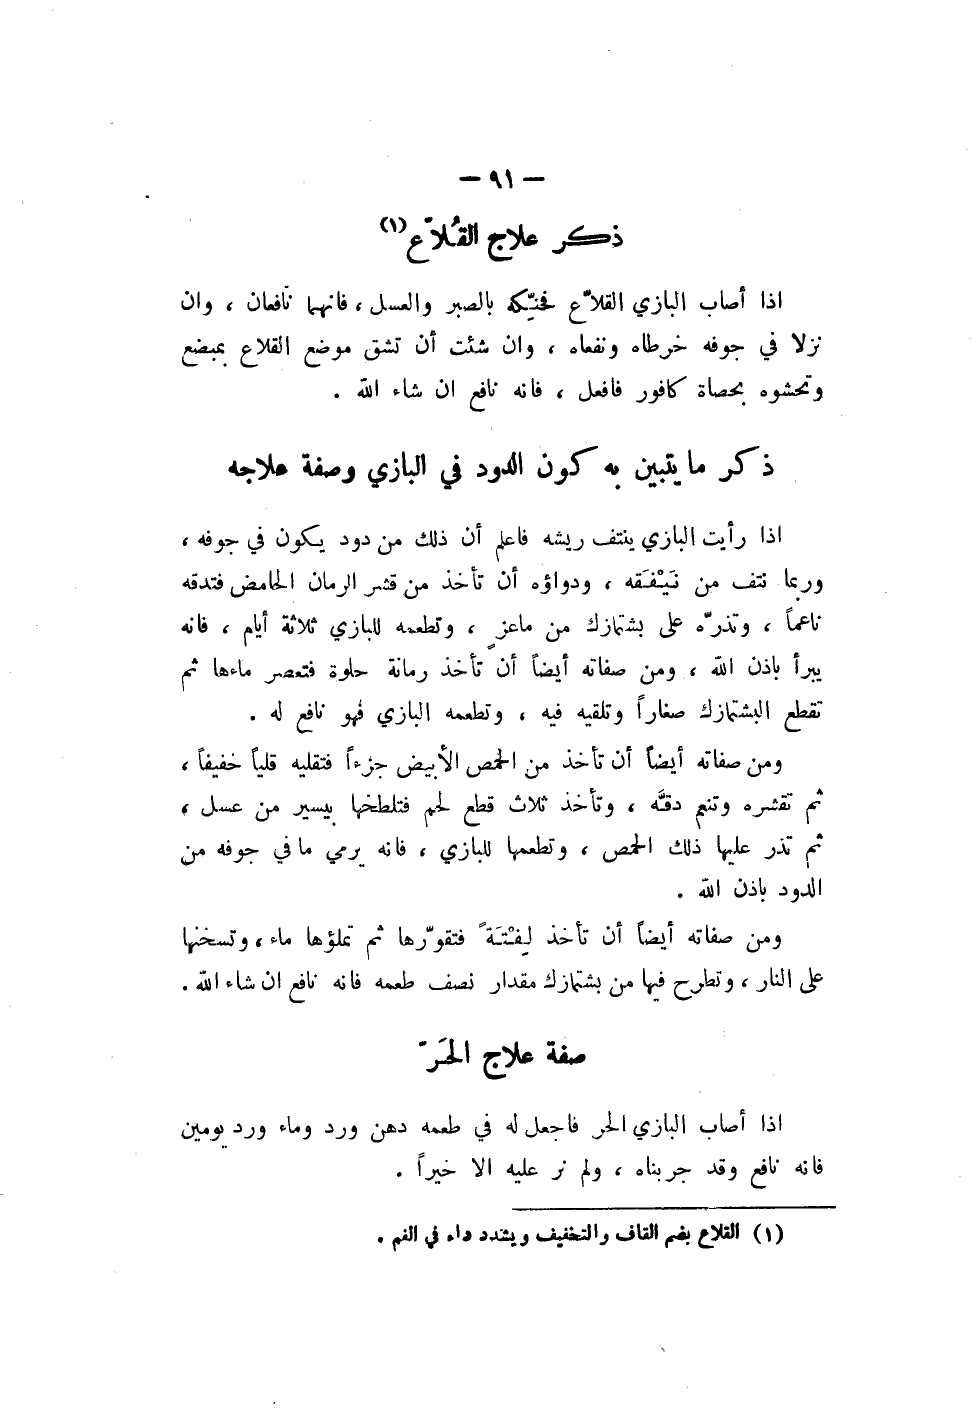 — ٩١ —
ذكر علاج القُلاّع (١)
اذا أصاب البازي القلاّع فحنّكه بالصبر والعسل ، فانهما نافعان ، وان
نزلا في جوفه خرطاه ونفعاه ، وان شئت أن تشق موضع القلاع بمبضع
وتحشوه بحصاة كافور فافعل ، فانه نافع ان شاء الله .
ذكر ما يتبين به كون الدود في البازي وصفة علاجه
اذا رأيت البازي ينتف ريشه فاعلم أن ذلك من دود يكون في جوفه ،
وربما نتف من نَيْفَقه ، ودواؤه أن تأخذ من قشر الرمان الحامض فتدقه
ناعماً ، وتذرّه على بشتمازك من ماعزٍ ، وتطعمه للبازي ثلاثة أيام ، فانه
يبرأ باذن الله ، ومن صفاته أيضاً أن تأخذ رمانة حلوة فتعصر ماءها ثم
تقطع البشتمازك صغاراً وتلقيه فيه ، وتطعمه البازي فهو نافع له .
ومن صفاته أيضاً أن تأخذ من الحمص الأبيض جزءاً فتقليه قلياً خفيفاً ،
ثم تقشره وتنعم دقَّه ، وتأخذ ثلاث قطع لحم فتلطخها بيسير من عسل ،
ثم تذر عليها ذلك الحمص ، وتطعمها للبازي ، فانه يرمي ما في جوفه من
الدود باذن الله .
ومن صفاته أيضاً أن تأخذ لِفْتَةً فتقوّرها ثم تملؤها ماء ، وتسخنها
على النار ، وتطرح فيها من بشتمازك مقدار نصف طعمه فانه نافع ان شاء الله .
صفة علاج الحَرّ
اذا أصاب البازي الحر فاجعل له في طعمه دهن ورد وماء ورد يومين
فانه نافع وقد جربناه ، ولم نر عليه الا خيراً .
(١) القلاع بضم القاف والتخفيف ويشدد داء في الفم .